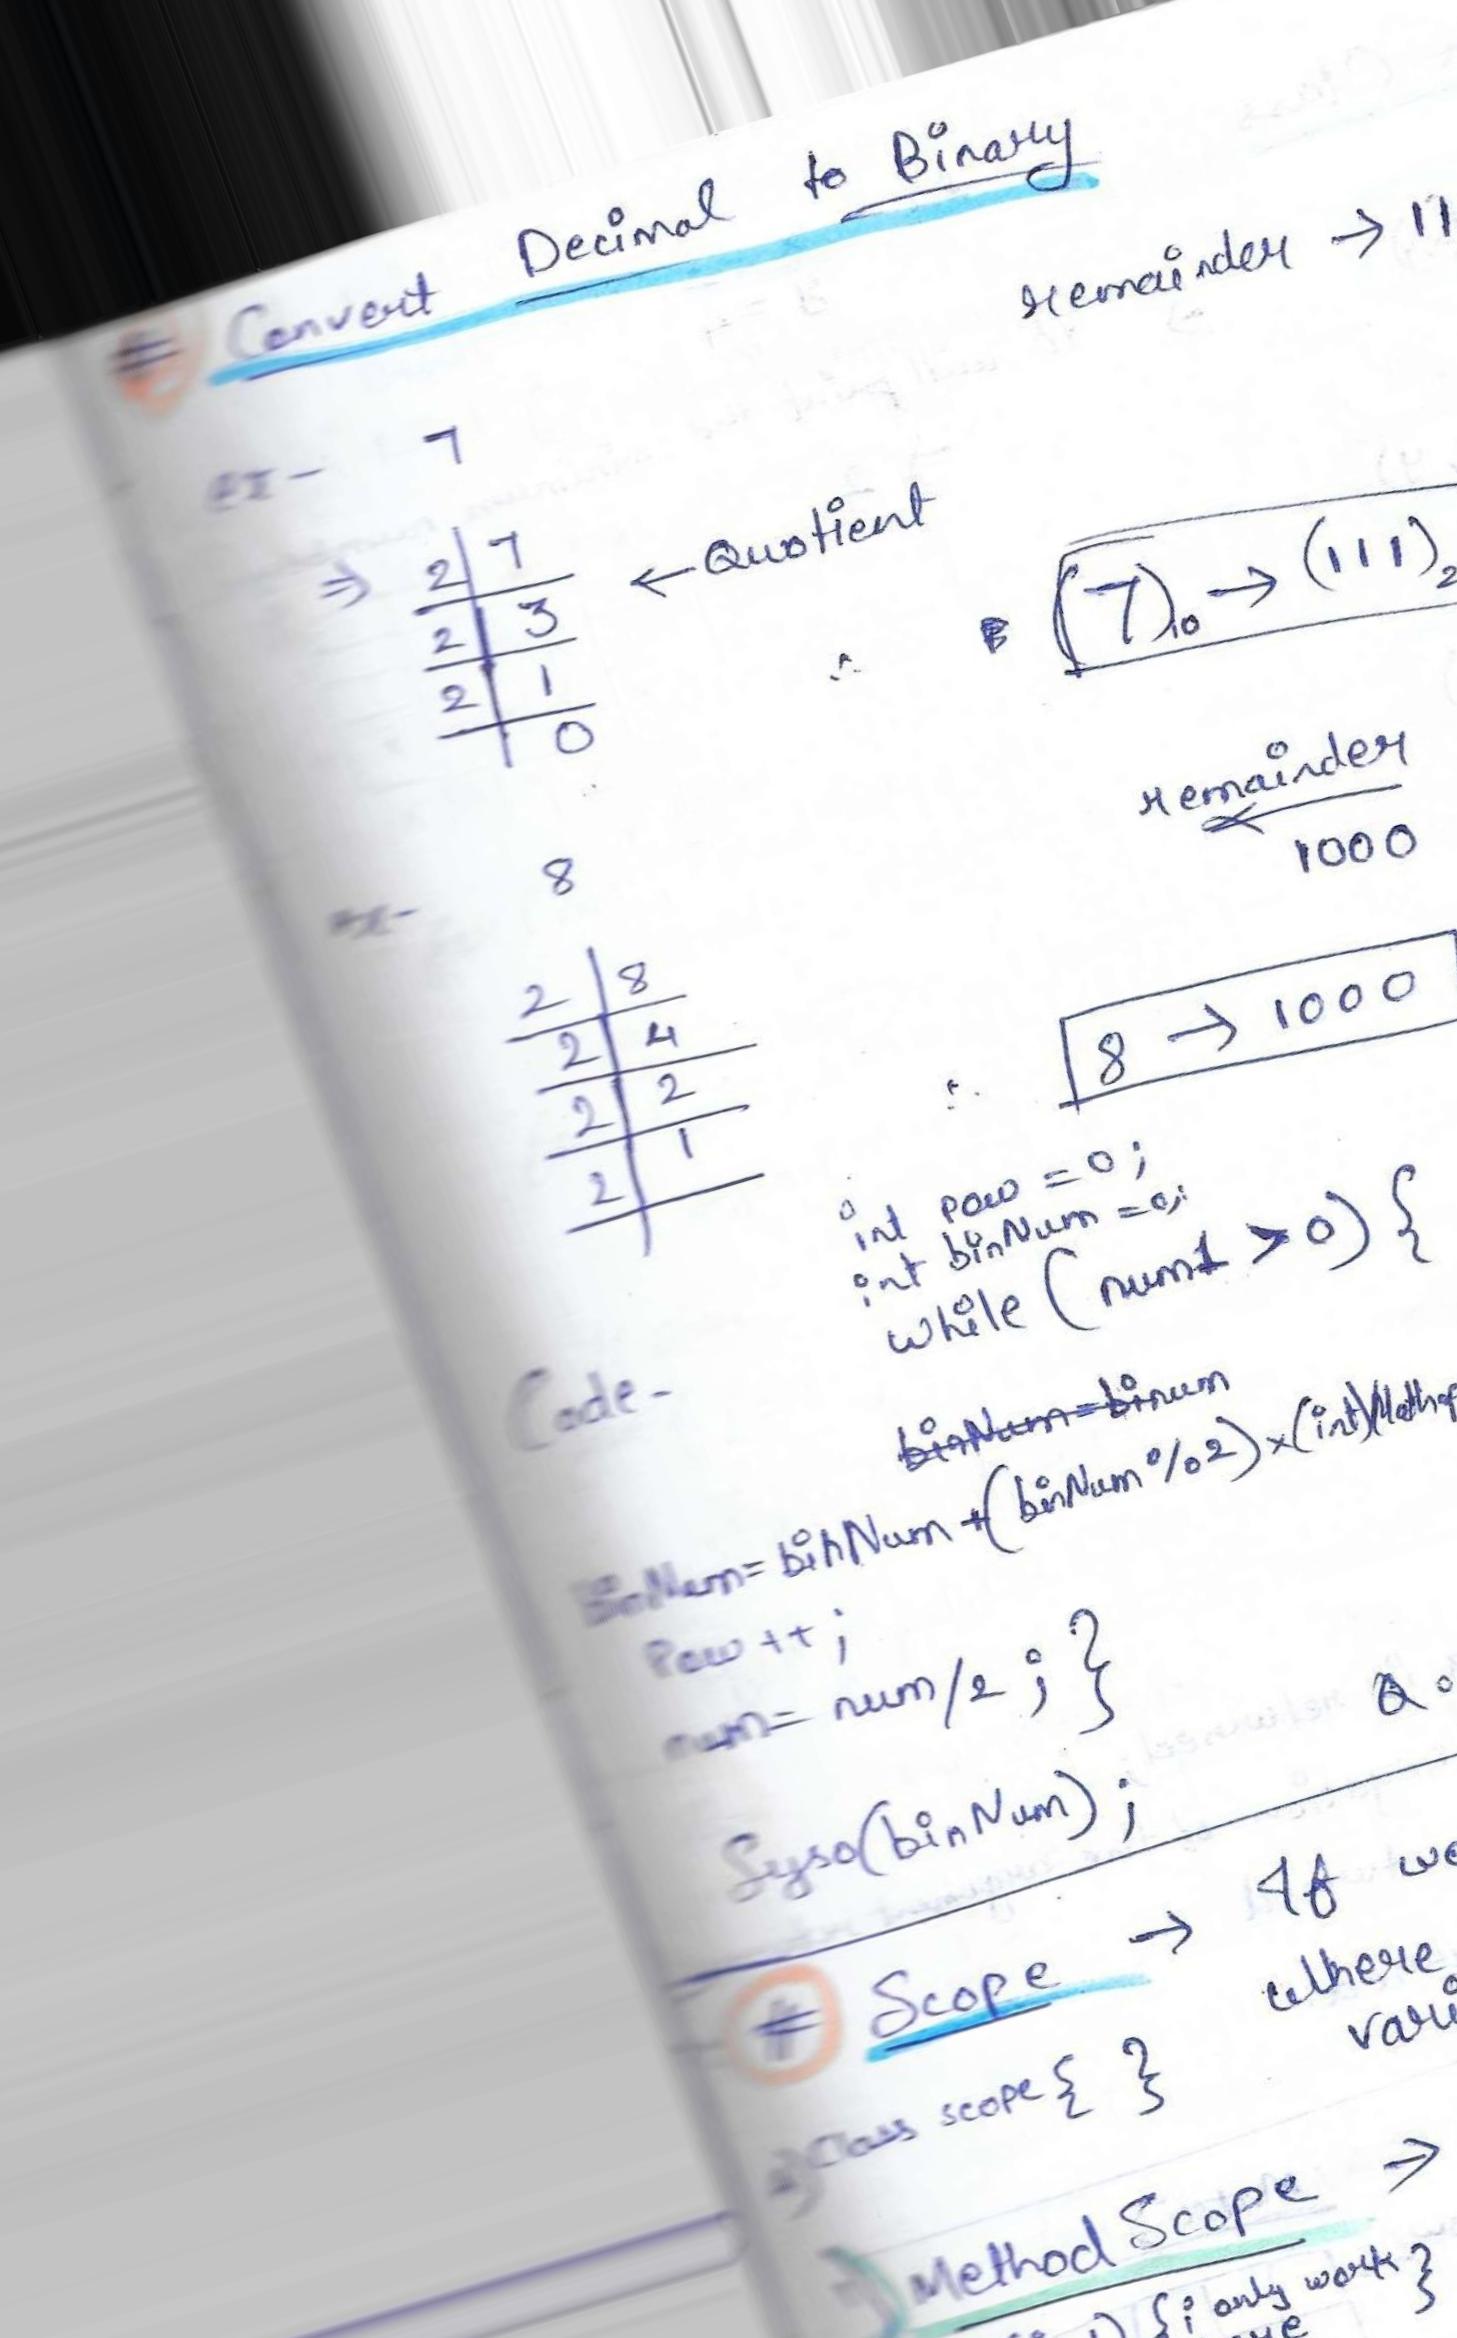 # Convert Decimal to Binary
remainder → 11
ex- 7
⇒ 2 | 7
2 | 3 ← Quotient
2 | 1
0
∴ (7)10 → (111)2
remainder
1000
ex- 8
2 | 8
2 | 4
2 | 2
2 | 1
∴ 8 → 1000
Code-
int pow = 0;
int binNum = 0;
while (num1 > 0) {
binNum = binum
binNum = binNum + (binNum % 2) × (int)
Pow ++;
num = num/2; }
Syso(binNum);
# Scope → If
where
Class scope { }
Method Scope →
{ i only work }